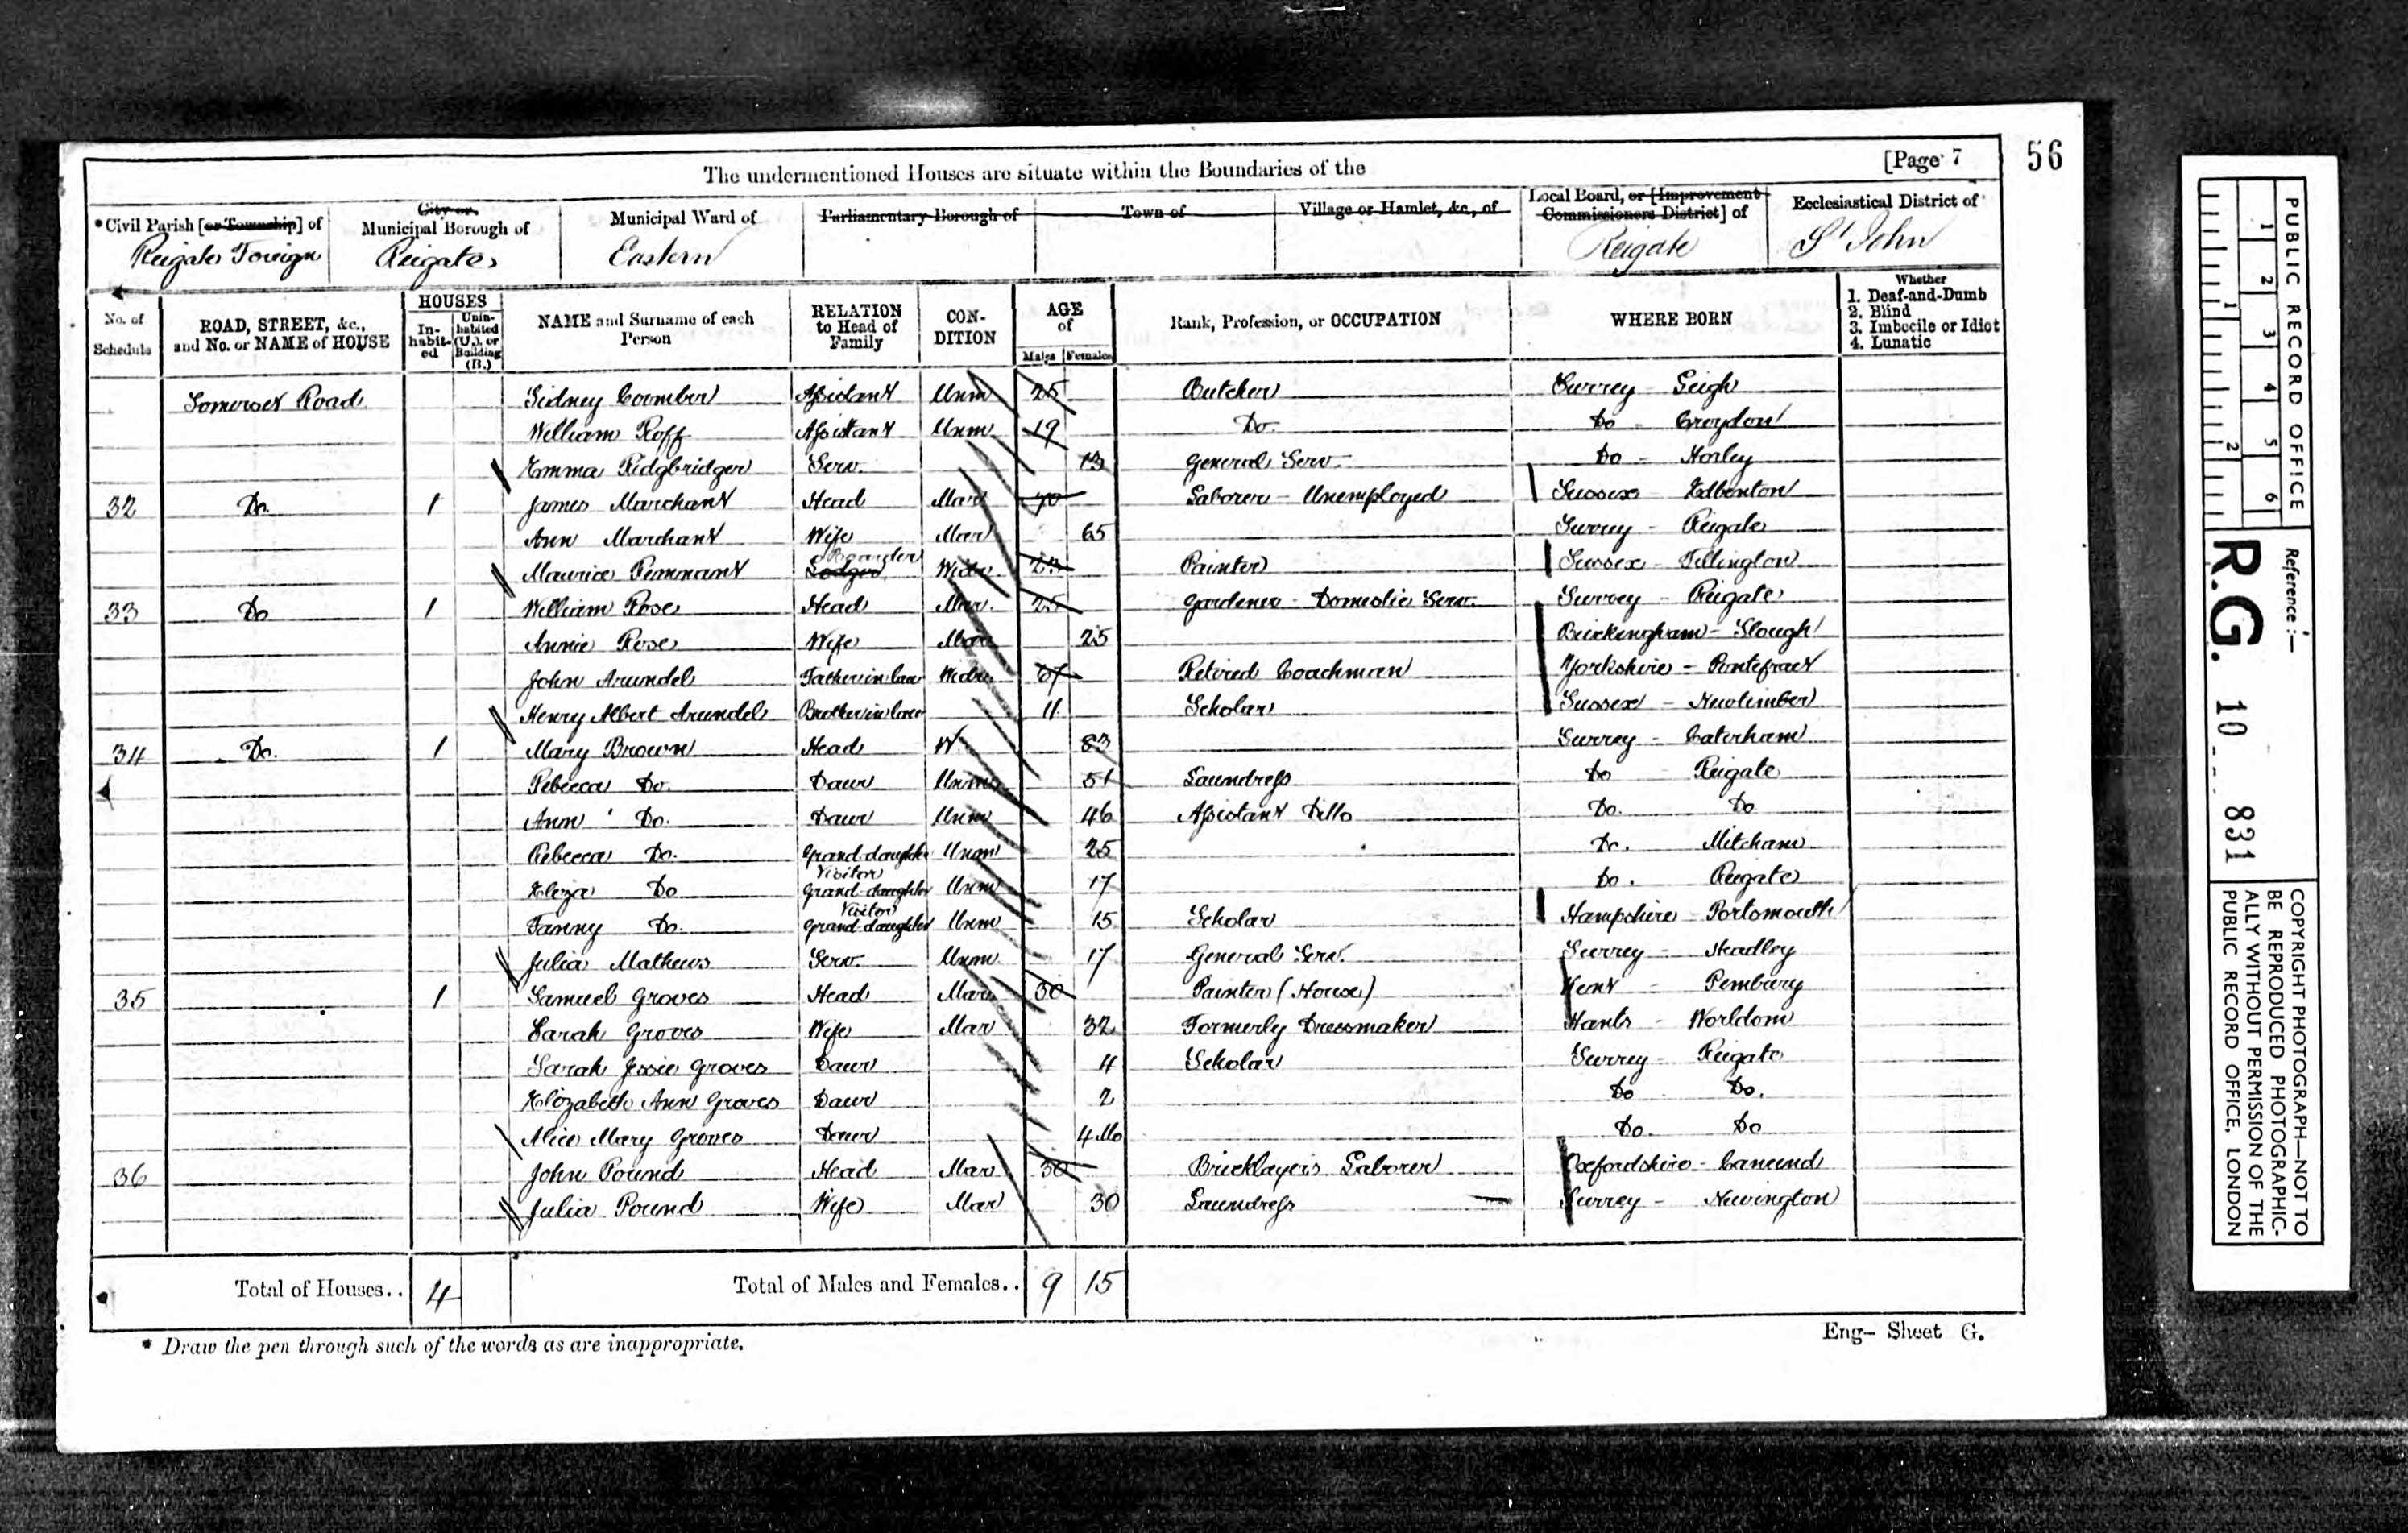 The undermentioned Houses are situate within the Boundaries of the
[Page 7
56
*Civil Parish [or Township] of
City or
Municipal Borough of
Municipal Ward of
Parliamentary Borough of
Town of
Village or Hamlet, &c., of
Local Board, or [Improvement
Commissioners District] of
Ecclesiastical District of
Reigate Foreign
Reigate
Eastern
Reigate
St John
No. of Schedule
ROAD, STREET, &c., and No. or NAME of HOUSE
HOUSES
In-habit-ed
Unin-habited (U.), or Building (B.)
NAME and Surname of each Person
RELATION to Head of Family
CON-DITION
AGE of
Males Females
Rank, Profession, or OCCUPATION
WHERE BORN
Whether
1. Deaf-and-Dumb
2. Blind
3. Imbecile or Idiot
4. Lunatic
Somerset Road Sidney Coomber Assistant Unm 25 Butcher Surrey - Leigh
William Roff Assistant Unm 19 Do. Do - Croydon
Emma Ridgbridger Serv. 13 General Serv. Do - Horley
32 Do. 1 James Marchant Head Mar 70 Laborer - Unemployed Sussex Edbenton
Ann Marchant Wife Mar 65 Surrey - Reigate
Maurice Pennant Lodger Boarder Widr. Painter Sussex - Tillington
33 Do 1 William Rose Head Mar. 25 Gardener - Domestic Serv. Surrey - Reigate
Annie Rose Wife Mar 25 Buckingham - Slough
John Arundel Father in law Widr 67 Retired Coachman Yorkshire - Pontefract
Henry Albert Arundel Brother in law 11 Scholar Sussex - Newtimber
34 Do. 1 Mary Brown Head W 83 Surrey - Caterham
Rebecca Do. Daur Unm 51 Laundress Do Reigate
Ann Do. Daur Unm 46 Assistant Ditto Do. Do
Rebecca Do. Grand-daughter Unm 25 Do. Mitcham
Eliza Do Visitor Grand-daughter Unm 17 Do. Reigate
Fanny Do. Visitor Grand-daughter Unm 15 Scholar Hampshire - Portsmouth
Julia Mathews Serv. Unm 17 General Serv. Surrey - Headley
35 1 Samuel Groves Head Mar 30 Painter (House) Kent - Pembury
Sarah Groves Wife Mar 32 Formerly Dressmaker Hants - Worldom
Sarah Jessie Groves Daur 4 Scholar Surrey - Reigate
Elizabeth Ann Groves Daur 2 Do Do.
Alice Mary Groves Daur 4 Mo Do. Do
36 John Pound Head Mar 30 Bricklayers Laborer Oxfordshire - Canend
Julia Pound Wife Mar 30 Laundress Surrey - Newington
Total of Houses.. 4
Total of Males and Females.. 9 15
* Draw the pen through such of the words as are inappropriate.
Eng- Sheet G.
PUBLIC RECORD OFFICE
1 2 3 4 5 6
1 2
Reference:-
R.G. 10 831
COPYRIGHT PHOTOGRAPH—NOT TO
BE REPRODUCED PHOTOGRAPHIC-
ALLY WITHOUT PERMISSION OF THE
PUBLIC RECORD OFFICE, LONDON